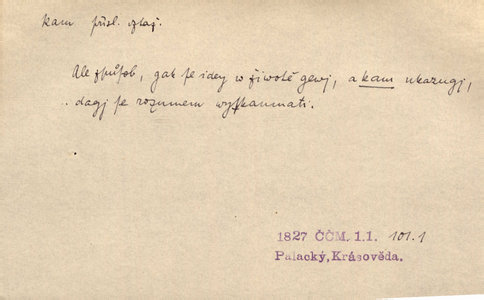 kam přísl. vztaž.
Ale způsob, gak se idey w žiwotě gewj, a kam ukazugj,
.. dagj se rozumem wyskaumati.
1827 ČČM. 1.1. 101.1
Palacký, Krásověda.